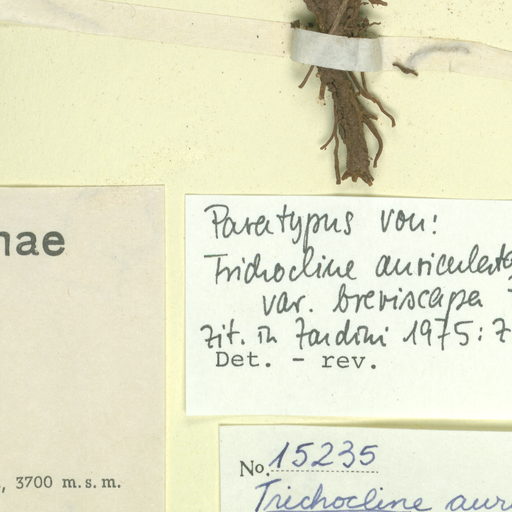 nae
Paratypus von:
Trichocline auriculata
var. breviscapa
zit. in Zardini 1975:
Det. - rev.
, 3700 m.s.m.
No. 15235
Trichocline aur